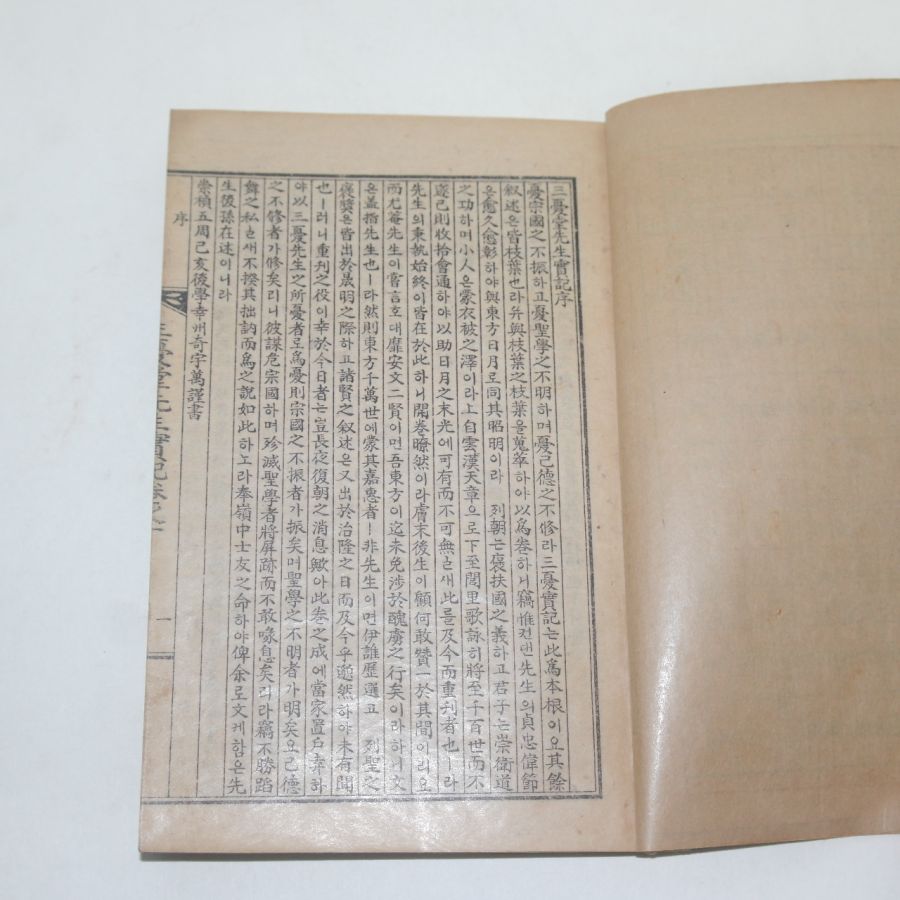 三憂堂先生實記序
憂宗國之不振하고憂聖學之不明하며憂己德之不修라三憂實記는此爲本根이오其餘
叙述은皆枝葉也라幷與枝葉之枝葉을蒐萃하야以爲卷하니竊惟컨댄先生의貞忠偉節
은愈久愈彰하야與東方日月로同其昭明이라 列朝는褒扶國之義하고君子는崇衛道
之功하며小人은蒙衣被之澤이라上自雲漢天章으로下至閭里歌詠히將至千百世而不
窆已則收拾會通하야以助日月之末光에可有而不可無ㄴ새此를及今而重刊者也ㅣ라
先生의秉執始終이皆在於此하니開卷瞭然이라膚末後生이顧何敢贊一於其間이리오
而尤菴先生이嘗言호대靡安文二賢이면吾東方이迄未免涉於醜虜之行矣이라하니文
은盖指先生也ㅣ라然則東方千萬世에蒙其嘉惠者ㅣ非先生이면伊誰歷選고 列聖之
褒奬은皆出於晟明之際하고諸賢之叙述은又出於治隆之日而及今乎邈然하야未有聞
也ㅣ러니重刊之役이幸於今日者는豈長夜復朝之消息歟아此卷之成에當家置戶弆하
야以三憂先生之所憂者로爲憂則宗國之不振者가振矣며聖學之不明者가明矣요己德
之不修者가修矣리니彼謀危宗國하며殄滅聖學者將屛跡而不敢喙息矣리라竊不勝蹈
舞之私ㄴ새不揆其拙訥而爲之說如此하노라奉嶺中士友之命하야俾余로文케함은先
生後孫在述이니라
崇禎五周己亥後學幸州奇宇萬謹書
序
三憂堂先生實記卷之
一